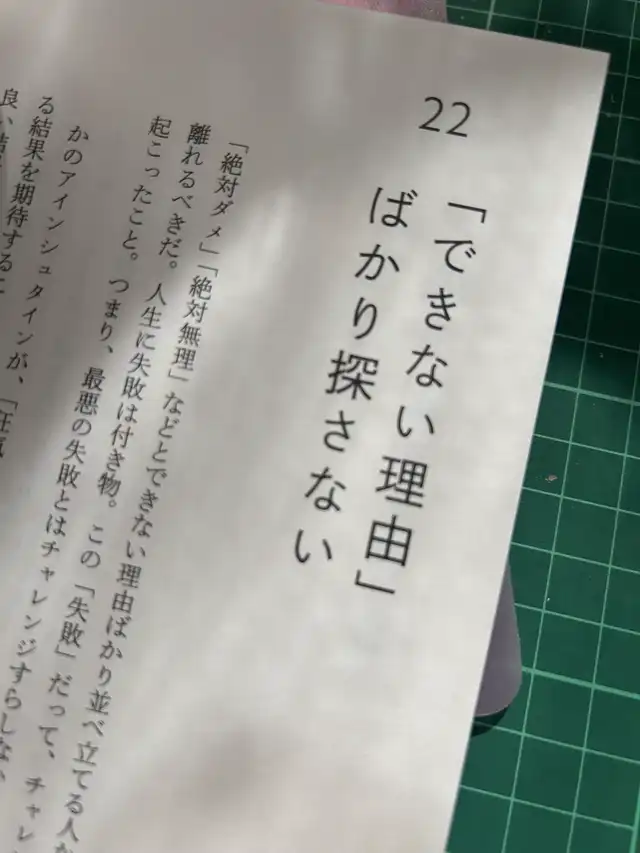 22
「できない理由」
ばかり探さない
「絶対ダメ」「絶対無理」などとできない理由ばかり並べ立てる人
離れるべきだ。人生に失敗は付き物。この「失敗」だって、チャレン
起こったこと。つまり、最悪の失敗とはチャレンジすらしない
かのアインシュタインが、「狂気
る結果を期待するこ
良い